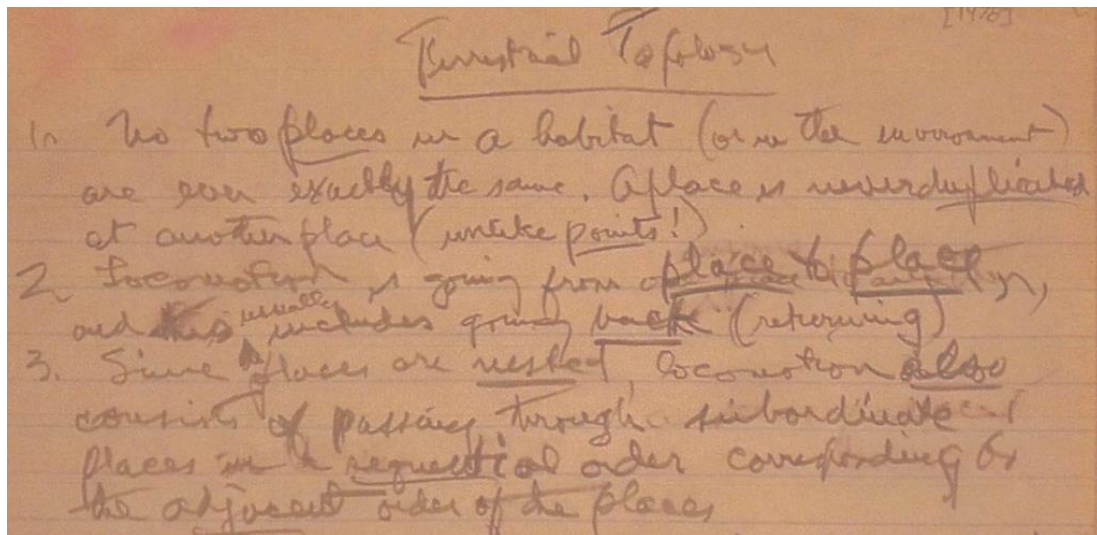 [1978]
Terrestrial Topology
1. No two places in a habitat (or in the environment)
are ever exactly the same. A place is never duplicated
at another place (unlike points!)
2. Locomotion is going from place to place
and this usually includes going back (returning)
3. Since places are nested, locomotion also
consists of passing through subordinate
places in a sequential order corresponding to
the adjacent order of the places